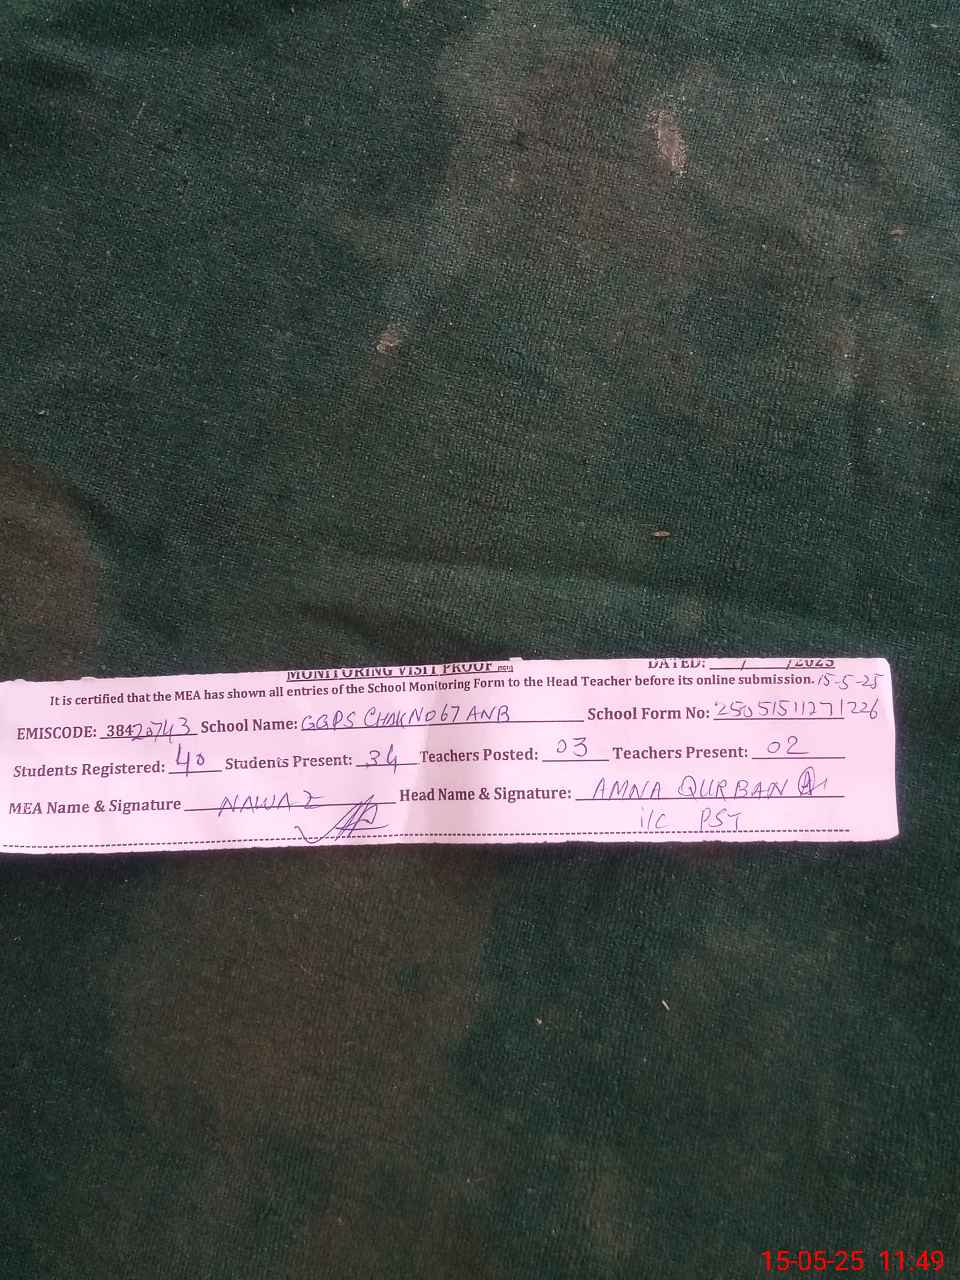 MONITORING VISIT PROOF DATED: __/__/2025
It is certified that the MEA has shown all entries of the School Monitoring Form to the Head Teacher before its online submission. 15-5-25
EMISCODE: 38420743 School Name: GGPS CHAK NO 67 ANB School Form No: 25051511271226
Students Registered: 40 Students Present: 34 Teachers Posted: 03 Teachers Present: 02
MEA Name & Signature NAWAZ Head Name & Signature: AMNA QURBAN
i/c PST
15-05-25 11:49